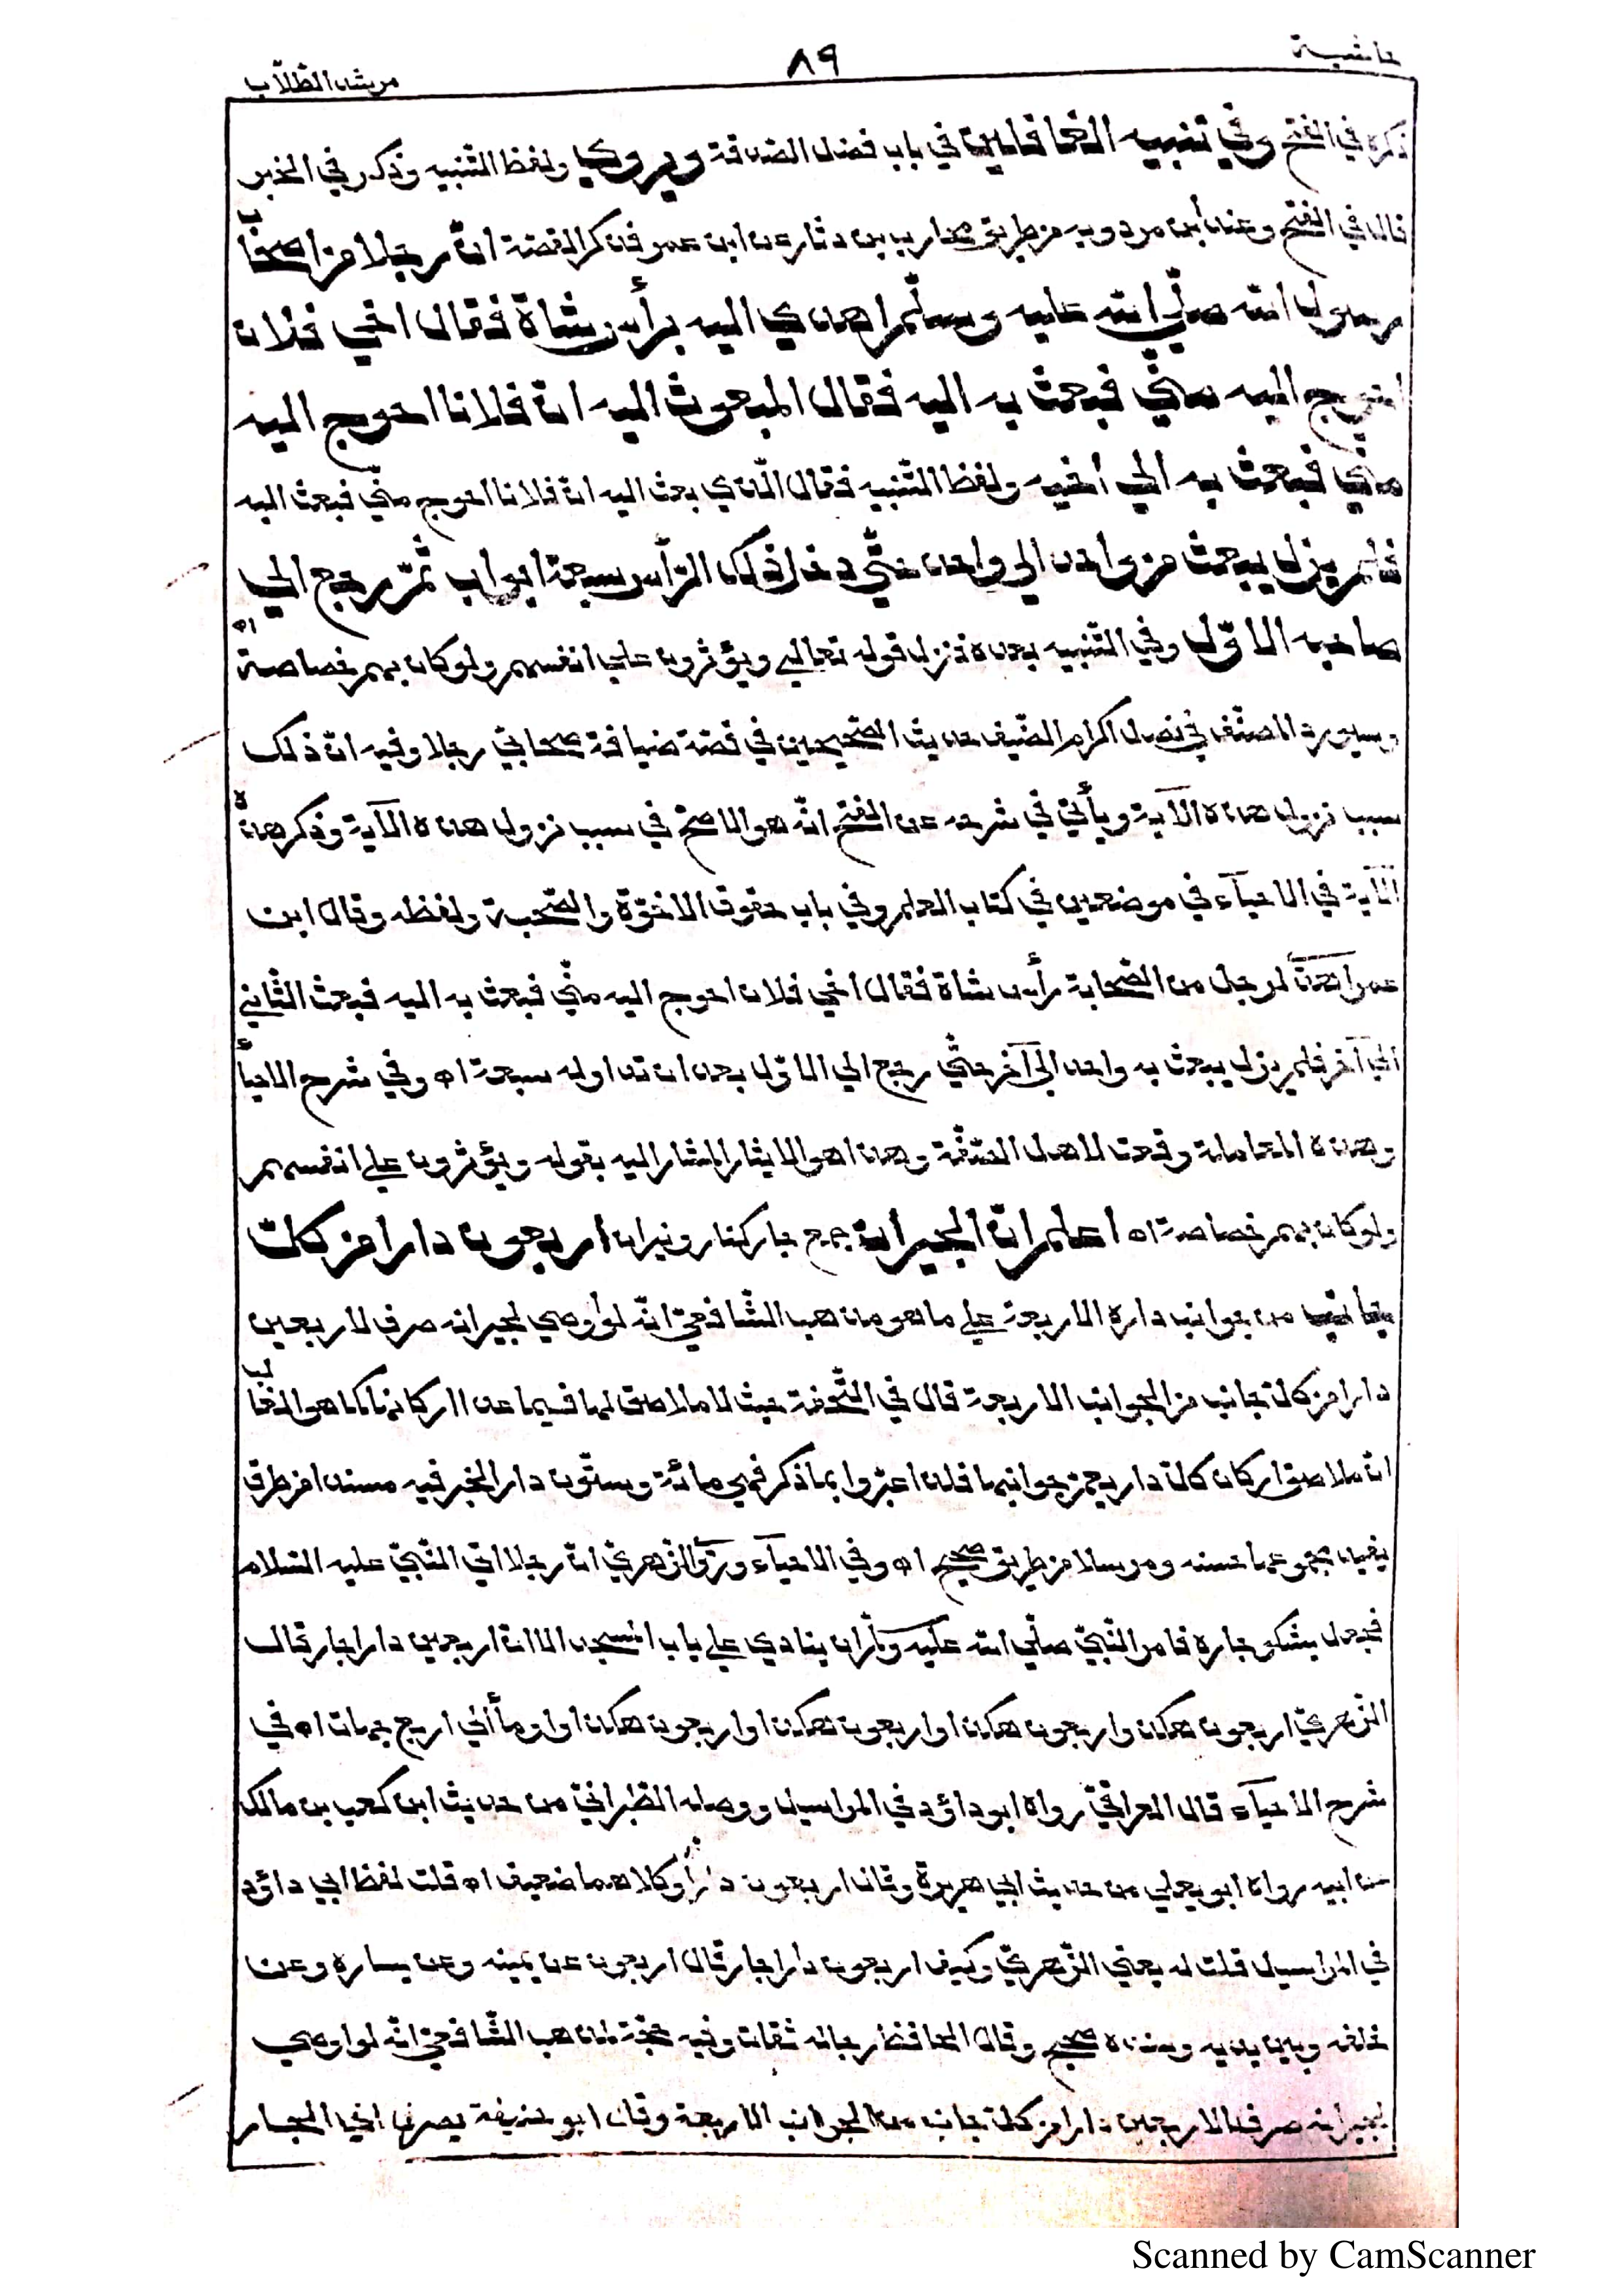 حاشية
٨٩
مرشد الطلّاب
ذكره في الفتح وفي تنبيه الغافلين في باب فضل الصدقة ويروي ولفظ التنبيه وذكر في الخبر
قال في الفتح وعند ابن مردويه من طريق محارب بن دثار عن ابن عمر فذكر القصة انّ رجلا من اصحاب
رسول الله صلّي الله عليه وسلّم اهدي اليه برأس شاة فقال اخي فلان
احوج اليه منّي فبعث به اليه فقال المبعوث اليه انّ فلانا احوج اليه
منّي فبعث به الي اخيه ولفظ التّنبيه فقال الّذي بعث اليه انّ فلانا احوج منّي فبعث اليه
فلم يزل يبعث من واحد الي واحد حتّي دخل ذلك الرّأس سبعة ابواب ثمّ رجع الي
صاحبه الاوّل وفي التّنبيه بعده فنزل قوله تعالي ويؤثرون علي انفسهم ولو كان بهم خصاصة اه
وسيورد المصنّف في فصل اكرام الضّيف حديث الصّحيحين في قصّة ضيافة صحابيّ رجلا وفيه انّ ذلك
سبب نزول هذه الآية ويأتي في شرحه عن الفتح انّه هو الاصحّ في سبب نزول هذه الآية وذكر هذه
الآية في الاحيآء في موضعين في كتاب العلم وفي باب حقوق الاخوّة والصّحبة ولفظه وقال ابن
عمر اهدي لرجل من الصّحابة رأس شاة فقال اخي فلان احوج اليه منّي فبعث به اليه فبعث الثّاني
الي آخر فلم يزل يبعث به واحد الي آخر حتّي رجع الي الاوّل بعد ان تداوله سبعة اه وفي شرح الاحيآء
وهذه المعاملة وقعت لاهل الصّفّة وهذا هو الايثار المشار اليه بقوله ويؤثرون علي انفسهم
ولو كان بهم خصاصة اه اعلم انّ الجيران جمع جار كنار ونيران اربعون دارا من كلّ
جانب من جوانب داره الاربعة علي ما هو مذهب الشّافعيّ انّه لو أوصي لجيرانه صرف لاربعين
دارا من كلّ جانب من الجوانب الاربعة قال في التّحفة حيث لا ملاصق لها فيما عدا اركانها كما هو الغالب
انّ ملاصق اركان كلّ دار يعمّ جوانبها فلذا عبّروا بما ذكر فهي مائة وستّون دار الخبر فيه مسندا من طرق
يفيد مجموعها حسنه ومرسلا من طريق صحيح اه وفي الاحيآء وروي الزّهريّ انّ رجلا اتي النّبيّ عليه السّلام
فجعل يشكو جاره فامر النّبيّ صلّي الله عليه وسلّم ان ينادي علي باب المسجد الا انّ اربعين دارا جار قال
الزّهريّ اربعون هكذا واربعون هكذا واربعون هكذا واربعون هكذا واومأ الي اربع جهات اه في
شرح الاحيآء قال العراقيّ رواه ابو داؤد في المراسيل ووصله الطّبرانيّ من حديث ابن كعب بن مالك
عن ابيه رواه ابو يعلي من حديث ابي هريرة وقال اربعون دارًا وكلاهما ضعيف اه قلت لفظ ابي داؤد
في المراسيل قلت له يعني الزّهريّ وكيف اربعون دارا جار قال اربعون عن يمينه وعن يساره وعن
خلفه وبين يديه وسنده صحيح وقال الحافظ رجاله ثقات وفيه حجّة لمذهب الشّافعيّ انّه لو اوصي
لجيرانه صرف لاربعين دارا من كلّ جانب من الجوانب الاربعة وقال ابو حنيفة يصرفها الي الجار
Scanned by CamScanner